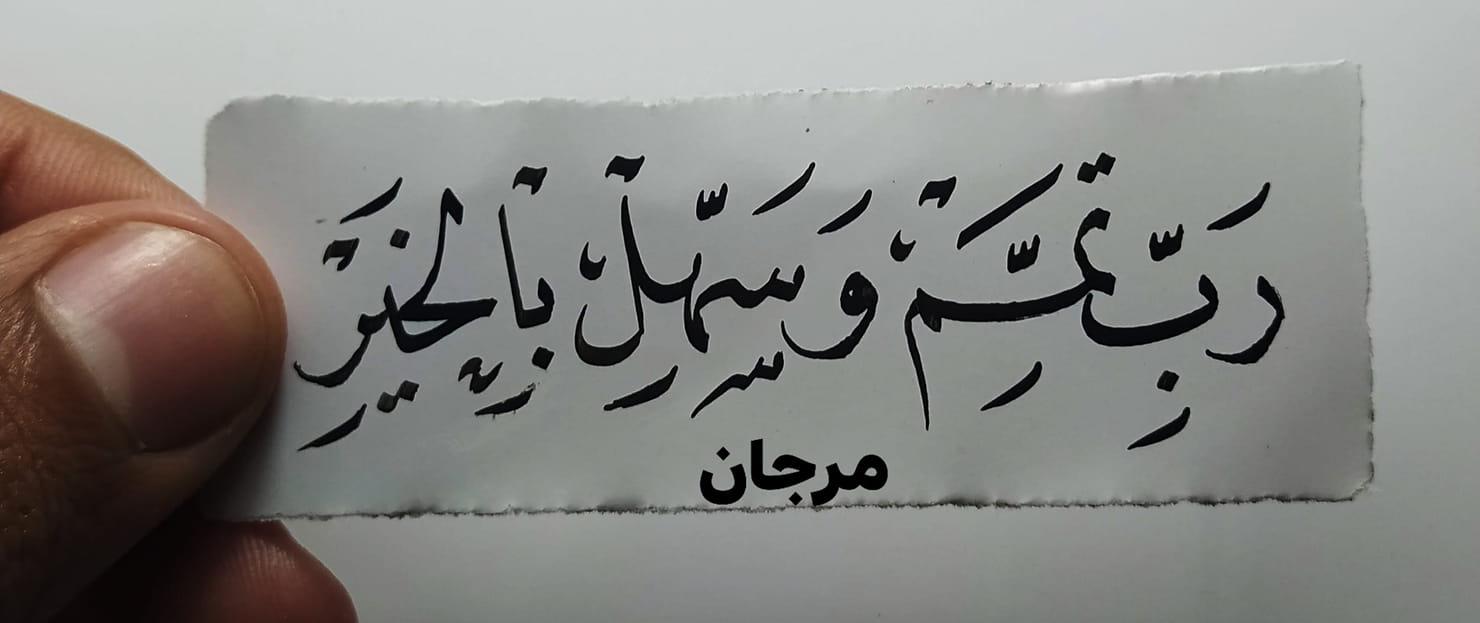 رَبِّ تَمِّمْ وَسَهِّلْ بِالْخَيْرِ
مرجان